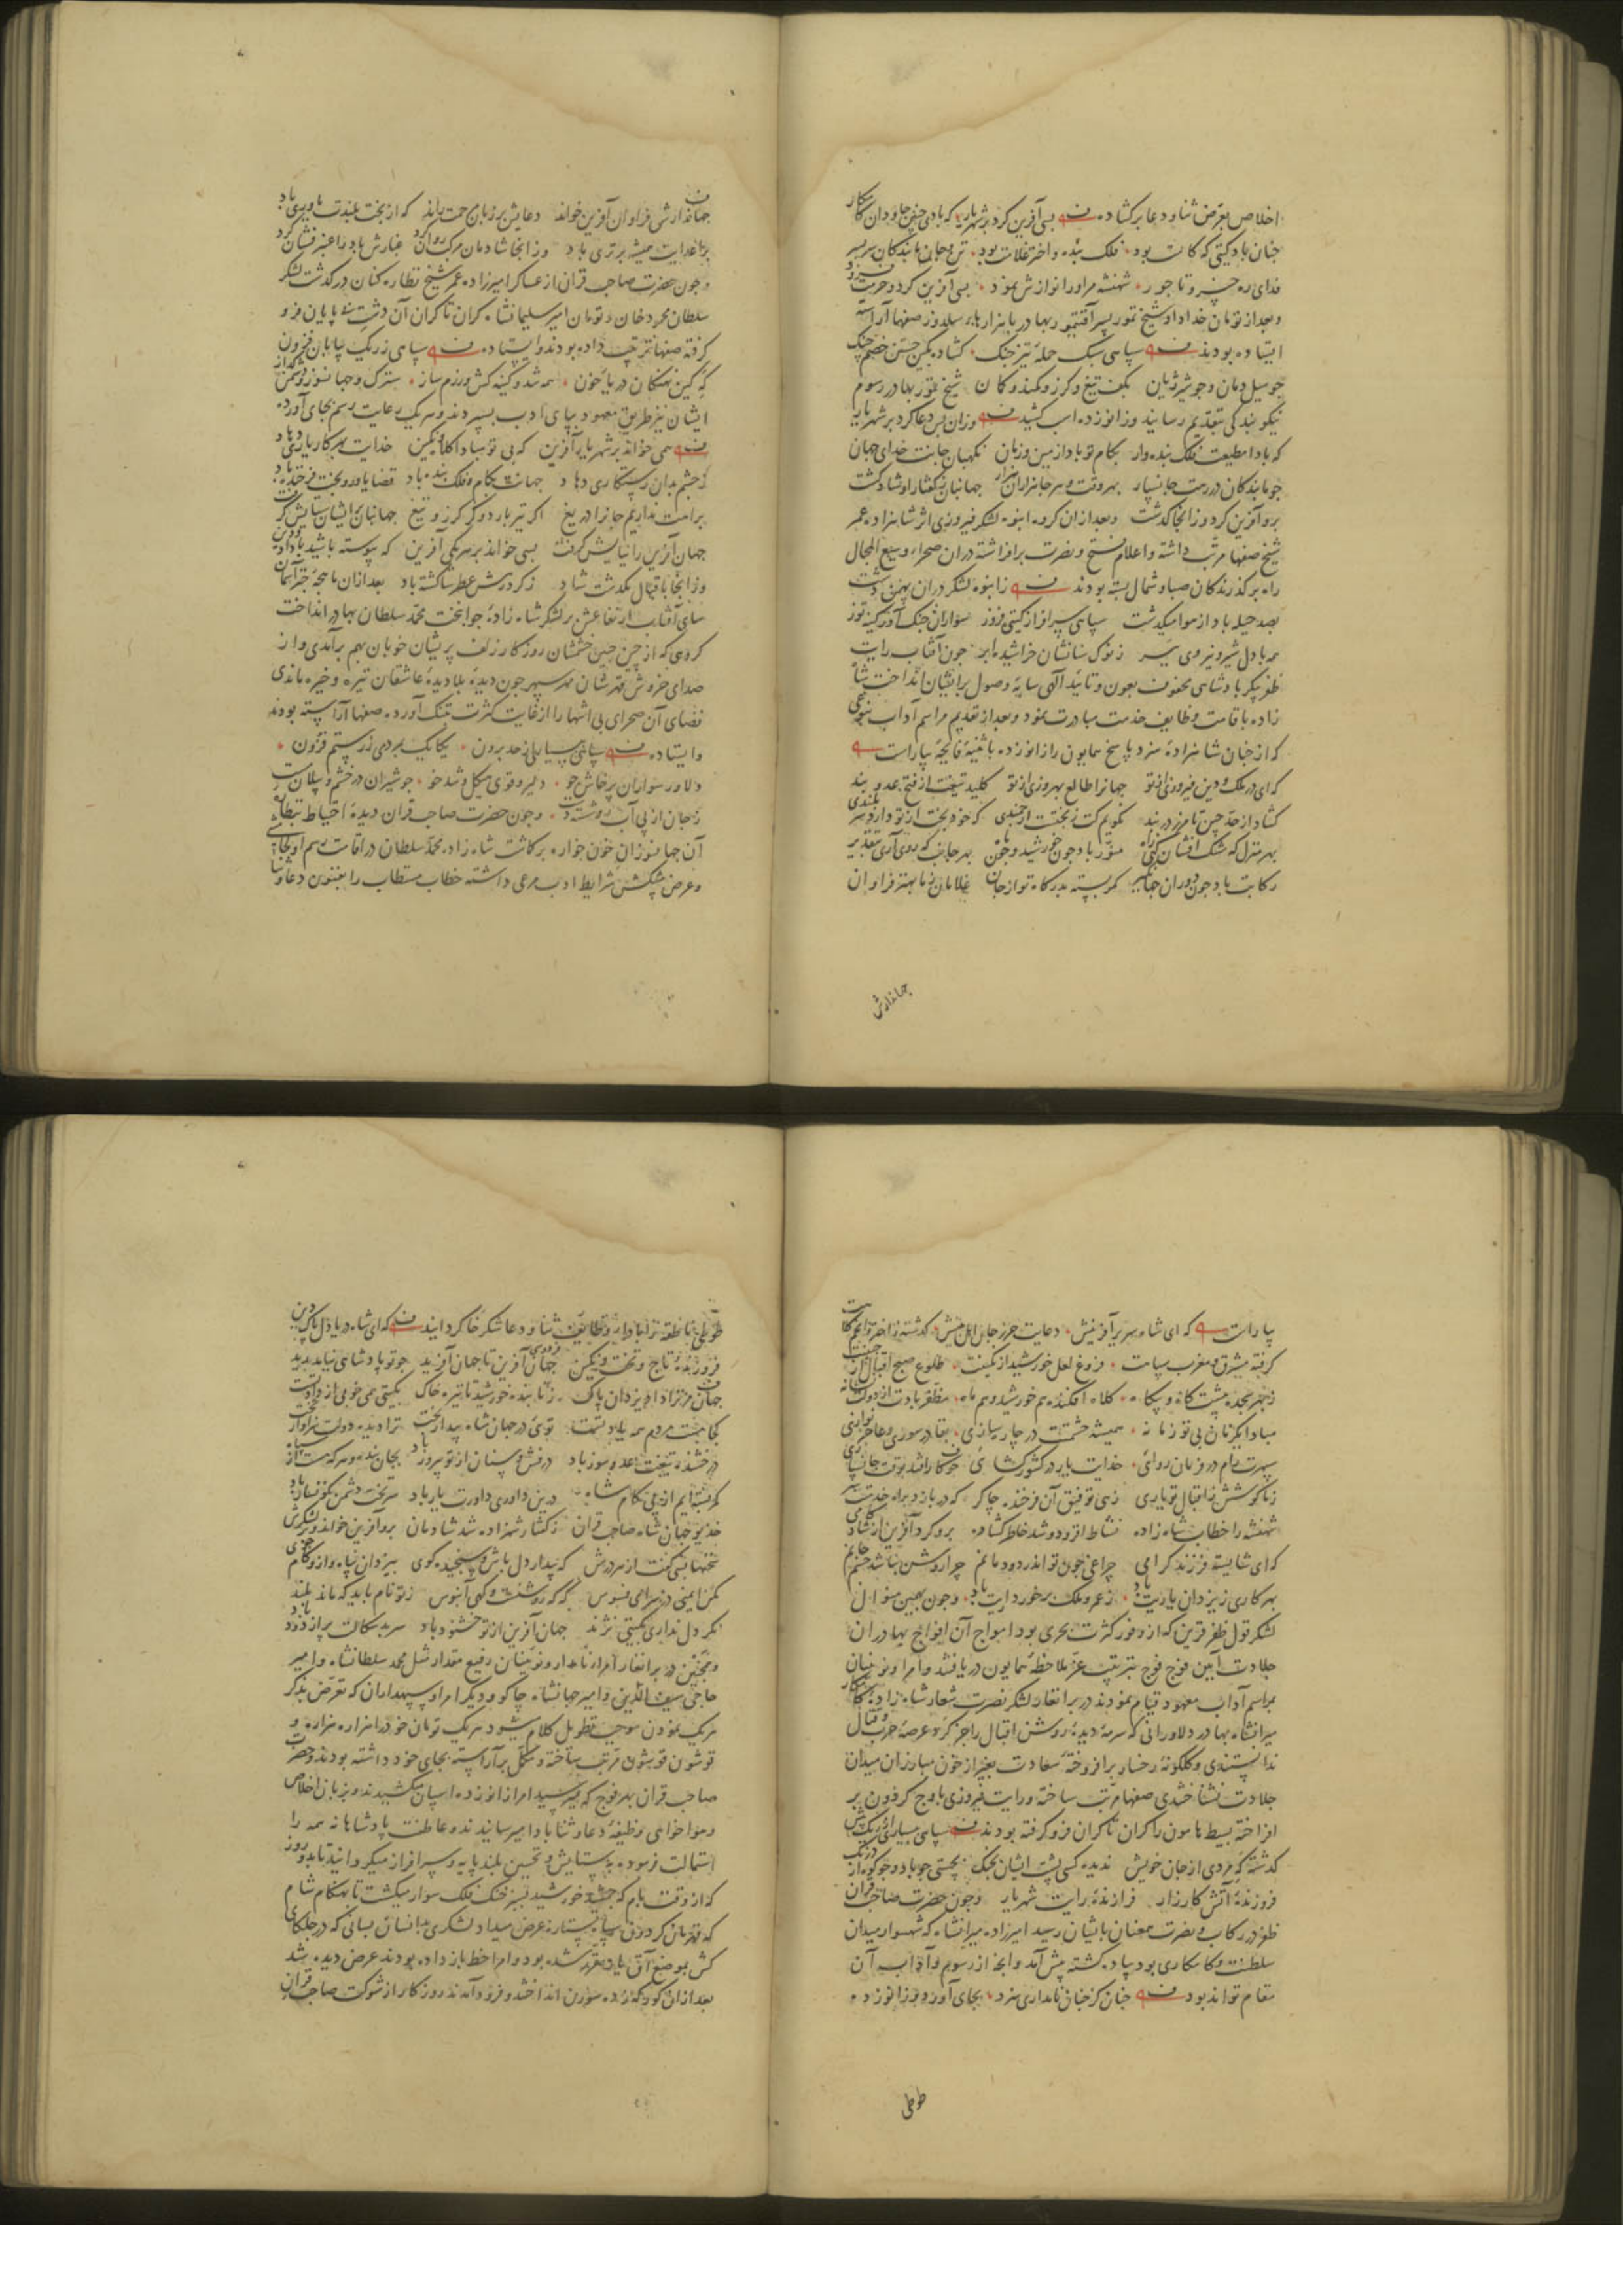 اخلاص بعرض ثنا و دعا برکشاده بسی آفرین کرد بر شهریار که بادی چنین جاودان کامکار
جنان باد کیتی که کامت بود فلک بنده و اختر غلامت بود تن و جان ما بندکان سربسر
فدای ره خسرو تاجور شهنشه مر او را نوازش نمود بسی آفرین کرد و حرمت فزود
و بعد از تومان خداداد شیخ تمور پسر آقتمور بهادر با هزارهاء سلدوز صفها آراسته
ایستاده بودند سپاهی سبک حمله تیز جنک کشاده بکین جستن خصم جنک
جو سیل دمان و جو شیر ژیان بکف تیغ و کرز و کمند و کمان شیخ تمور بهادر رسوم
نیکو بندکی بتقدیم رسانید و زانو زده اسب کشید وزان پس دعا کرد بر شهریار
که بادا مطیعت فلک بنده وار بکام تو بادا زمین و زمان نکهبان جانت خدای جهان
جو ما بندکان در رهت جانسپار بهر وقت و هر جا هزاران هزار جهانبان بکفتار او شاد کشت
برو آفرین کرد و زانجا کذشت و بعد از آن کروه انبوه لشکر فیروزی اثر شاهزاده عمر
شیخ صفها مرتب داشته و اعلام فتح و نصرت برافراشته در آن صحراء وسیع المجال
راه بر کذرندکان صبا و شمال بسته بودند ز انبوه لشکر در آن پهن دشت
بصد حیله باد از هوا میکذشت سپاهی سرافراز کیتی فروز سواران جنک آور کینه توز
همه با دل شیر و نیروی ببر ز نوک سنانشان خراشیده ابر جون آفتاب رایت
ظفر پیکر پادشاهی محفوف بعون و تائید آلهی سایه وصول بر ایشان انداخت شا
زاده باقامت وظایف خدمت مبادرت نمود و بعد از تقدیم مراسم آداب بنوعی
که از جنان شاهزاده سزد پاسخ همایون را زانو زده باثنیه فایحه بیاراست
که ای در ملک و دین فیروزی از تو جهانرا طالع بهروزی از تو کلید تیغت از فتح عدو بند
کشاد از حد جین تا مرز دربند نکویم کت ز بختت ارجمندی که خود بخت از تو دارد سربلندی
بهر منزل که مشک افشان کنی راه منور باد جون خورشید و جون ماه بهر جانب که روی آری بتقدیر
رکابت باد جون دوران جهانکیر کمر بسته بدرکاه تو از جان غلامان ز ما بهتر فراوان
جهاندارش
جهاندارش فراوان آفرین خواند دعایش بر زبان مرحمت راند که از بخت بلندت یاوری باد
بر اعدایت همیشه برتری باد وز انجا شادمان مرکب روان کرد غبارش باد را عنبرفشان کرد
و جون حضرت صاحب قران از عساکر امیرزاده عمر شیخ نظاره کنان در کذشت لشکر
سلطان محمود خان و تومان امیر سلیمانشاه کران تا کران آن دشت بی پایان فرو
کرفته صفها ترتیب داده بودند و ایستاده سپاهی ز ریک بیابان فزون
که کین نهنکان دریا خون همه شد و کینه کش و رزم ساز سترک و جهانسوز و دشمن کداز
ایشان نیز طریق معهود بپای ادب بسپردند و هر یک رعایت رسم بجای آورده
همی خواند بر شهریار آفرین که بی تو مبادا کلاه و نکین خدایت بهر کار یاری دهاد
ز جشم بدان رستکاری دهاد جهانت بکام و فلک بنده باد قضا یاور و بخت فرخنده باد
براهت نداریم جانرا دریغ اکر تیر بارد و کر کرز و تیغ جهانبان بر ایشان ستایش کرفت
جهان آفرین را نیایش کرفت بسی خواند بر هر یکی آفرین که پیوسته باشید با داد و دین
وز انجا باقبال بکذشت شاد ز کردش عطر ساکشته باد بعد از آن ماهجه جتر آسمان
سای آفتاب ارتفاعش بر لشکر شاه زاده جوانبخت محمد سلطان بهادر انداخت
کروهی که از جین جبین خشمشان روزکار زلف پریشان خوبان بهم برآمدی و از
صدای خروش قهرشان مهر سپهر جون دیده بلادیده عاشقان تیره و خیره ماندی
فضای آن صحرای بی انتها را از غایت کثرت تنک آورده صفها آراسته بودند
و ایستاده سپاهی بسیاری از حد برون یکایک بمردی ز رستم فزون
دلاور سواران پرخاش جو دلیر و قوی هیکل و تند خو جو شیران در خشم و پیلان مست
ز جان از پی آب رو شسته دست و جون حضرت صاحب قران دیده احتیاط بنظاره
آن جهانسوزان خون خواره برکاشت شاه زاده محمد سلطان در اقامت رسم اولجامیشی
و عرض پیشکش شرایط ادب مرعی داشته خطاب مستطاب را بفنون دعا و ثنا
بیاراست که ای شاه سریر آفرینش دعایت حرز جان اهل بینش کذشته ز اختر و انجم کلاهت
کرفته مشرق و مغرب سپاهت فروغ لعل خورشید از نکینت طلوع صبح اقبال از جبینت
ز بهر سجده پیشت کاه و بیکاه کلاه افکنده هم خورشید و هم ماه مظفر بادت از دولت نشانه
مبادا یکزمان بی تو زمانه همیشه حشمتت در جار سازی بقا در سوری و عاجز نوازی
سپهرت رام در فرمان روائی خدایت یار در کشور کشائی جو کار افتد بوقت جانسپاری
ز ما کوشش ز اقبال تو یاری زهی توفیق آن فرخنده جاکر که در بازد براه خدمتت سر
شهنشه را خطاب شاه زاده نشاط افزود و شد خاطر کشاده برو کرد آفرین از شادکامی
که ای شایسته فرزند کرامی جراغی جون تو اندر دودمانم جرا روشن نباشد جشم جانم
بهر کاری ز یزدان یاریت باد ز عمر و ملک برخورداریت باد و جون بهمین منوال
لشکر قول ظفر قرین که از وفور کثرت بحری بود امواج آن افواج بهادران
جلادت آیین فوج فوج بترتیب عز ملاحظه همایون دریافتند و امرا و نوئینان
بمراسم آداب معهود قیام نمودند در برانغار لشکر نصرت شعار شاه زاده کامکار
میرانشاه بهادر دلاورانی که سرمه دیده روشن اقبال را جز کرد عرصه حرب و قتال
ندانستندی و کلکونه رخسار برافروخته سعادت بغیر از خون مبارزان میدان
جلادت نشناختندی صفها مرتب ساخته و رایت فیروزی باوج کردون بر
افراخته بسیط هامون را کران تا کران فرو کرفته بودند سپاهی بسیاری از ریک بیش
کذشته که مردی از جان خویش ندیده کسی پشت ایشان بجنک بجستی جو باد و جو کوه از درنک
فروزنده آتش کارزار فرازنده رایت شهریار و جون حضرت صاحب قران
ظفر در رکاب و نصرت همعنان بایشان رسید امیرزاده میرانشاه که شهسوار میدان
سلطنت و کامکاری بود پیاده کشته پیش آمد و انجه از رسوم و آداب آن
مقام تواند بود جنان کز جنان نامداری سزد بجای آورد و زانو زده
طوطی
طوطی ناطقه را بادای وظایف ثنا و دعا شکرخا کردانید که ای شاه دریا دل پاک دین
فروزنده تاج و تخت و نکین جهان آفرین تا جهان آفرید جو تو پادشاهی نیامد پدید
جهان مر ترا داد یزدان پاک ز تابنده خورشید تا تیره خاک بکیتی همی خوبی از داد تست
کجا هست مردم همه یاد تست توئی در جهان شاه بیدار بخت ترا دیده دولت سزاوار تخت
درخشنده تیغت عدو سوز باد درفش و سنان از تو پیروز باد بجان بنده و هر که هست از سپاه
کمر بسته ایم از پی کام شاه درین داوری داورت یار باد سر تخت دشمن نکونسار باد
خدیو جهان شاه صاحب قران ز کفتار شهزاده شد شادمان برو آفرین خواند و بر لشکرش
سخنها بسی کفت از هر درش که بیدار دل باش و سنجیده کوی بیزدان پناه و از و کام جوی
مکن ایمنی در سرای فسوس که که روشنست و کهی آبنوس ز تو نام باید که ماند بلند
نکر دل نداری بکیتی نژند جهان آفرین از تو خشنود باد سر بدسکالت پر از دود باد
و همجنین در برانغار امراء نامدار و نوئینان رفیع مقدار مثل محمد سلطانشاه و امیر
حاجی سیف الدین و امیر جهانشاه جاکو و دیکر امرا و سپهداران که تعرض بذکر
هر یک نمودن موجب تطویل کلام میشود هر یک تومان خود را هزاره هزاره و
قوشون قوشون مرتب ساخته و مکمل برآراسته بجای خود داشته بودند و حضرت
صاحب قران بهر فوج که میرسید امرا زانو زده اسبان میکشیدند و بزبان اخلاص
و هواخواهی وظیفه دعا و ثنا بادا میرسانیدند و عاطفت پادشاهانه همه را
استمالت فرموده بستایش و تحسین بلند پایه و سرافراز میکردانید تا بدو روز
که از وقت بام که جمشید خورشید بر خنک فلک سوار میکشت تا بهنکام شام
که قهرمان کردون سپاه ستاره عرض میداد لشکری بدانسان بسانی که در جلکای
کش بموضع آق یار مقرر شده بود و امرا خط باز داده بودند عرض دیده شد
بعد از آن کورکه زده سورن انداختند و فرود آمدند روزکار از شوکت صاحب قران